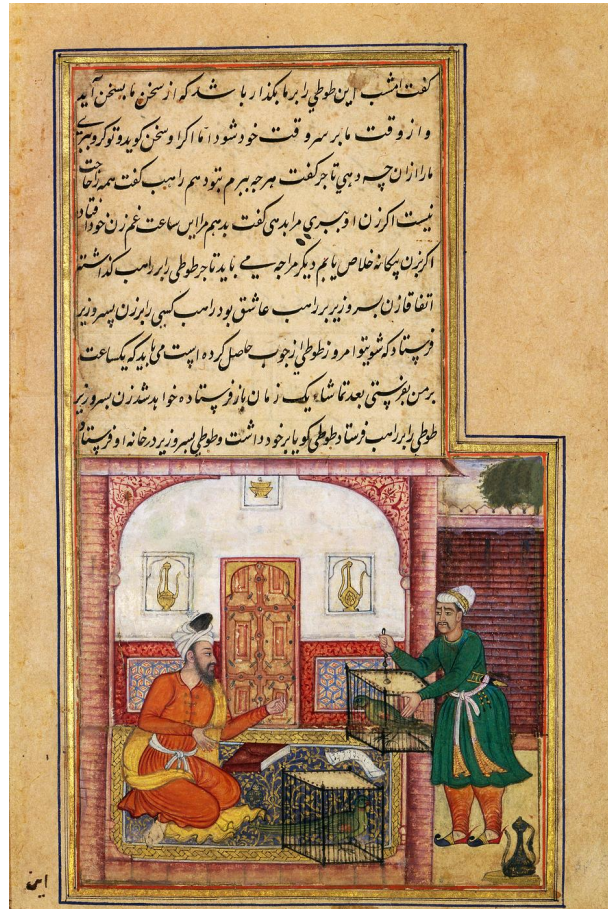 گفت امشب این طوطی را بر ما بگذار باشد که از سخن ما بسخن آید
و از وقت ما بر سر وقت خود شود اما اگر او سخن گوید و تو گرو بری
ما را ازان چه دهی تاجر گفت هرچه ببرم بتو دهم راهب گفت همه را حاجت
نیست اگر زن او ببری مرا بدهی گفت بدهم مرا این ساعت غم زن خود افتاد
اگر بزن بیگانه خلاص یابم دیگر مرا چه می باید تاجر طوطی را بر راهب گذاشته
اتفاقا زن پسر وزیر بر راهب عاشق بود راهب کسی را بر زن پسر وزیر
فرستاد که شوی تو امروز طوطی از چوب حاصل کرده است می باید که یکساعت
بر من بفرستی بعد تماشاء یک زمان باز فرستاده خواهد شد زن پسر وزیر
طوطی را بر راهب فرستاد طوطی گویا بر خود داشت و طوطی پسر وزیر در خانه او فرستاد
این